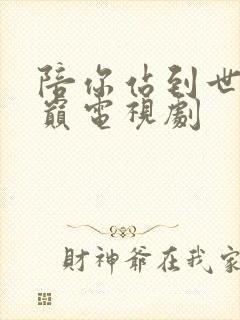 陪你佔到世
巔電視劇
財神爺在我家